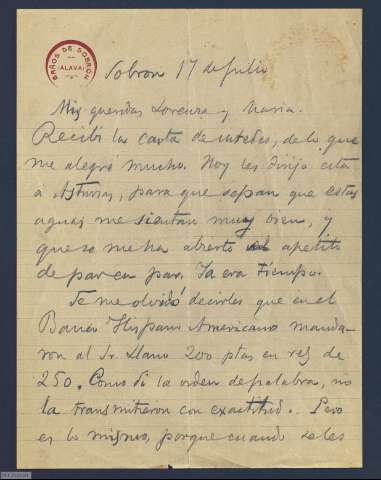 BAÑOS DE SOBRÓN
ALAVA
Sobron 17 de julio
Mis queridas Lorenza y Maria.
Recibí la carta de ustedes, de lo que
me alegré mucho. Hoy les dirijo esta
á Asturias, para que sepan que estas
aguas me sientan muy bien, y
que se me ha abierto el apetito
de par en par. Ya era tiempo.
Se me olvidó decirles que en el
Banco Hispano Americano manda-
ron al Sr. Llano 200 ptas en vez de
250. Como di la orden de palabra, no
la transmitieron con exactitud. Pero
es lo mismo, porque cuando se les